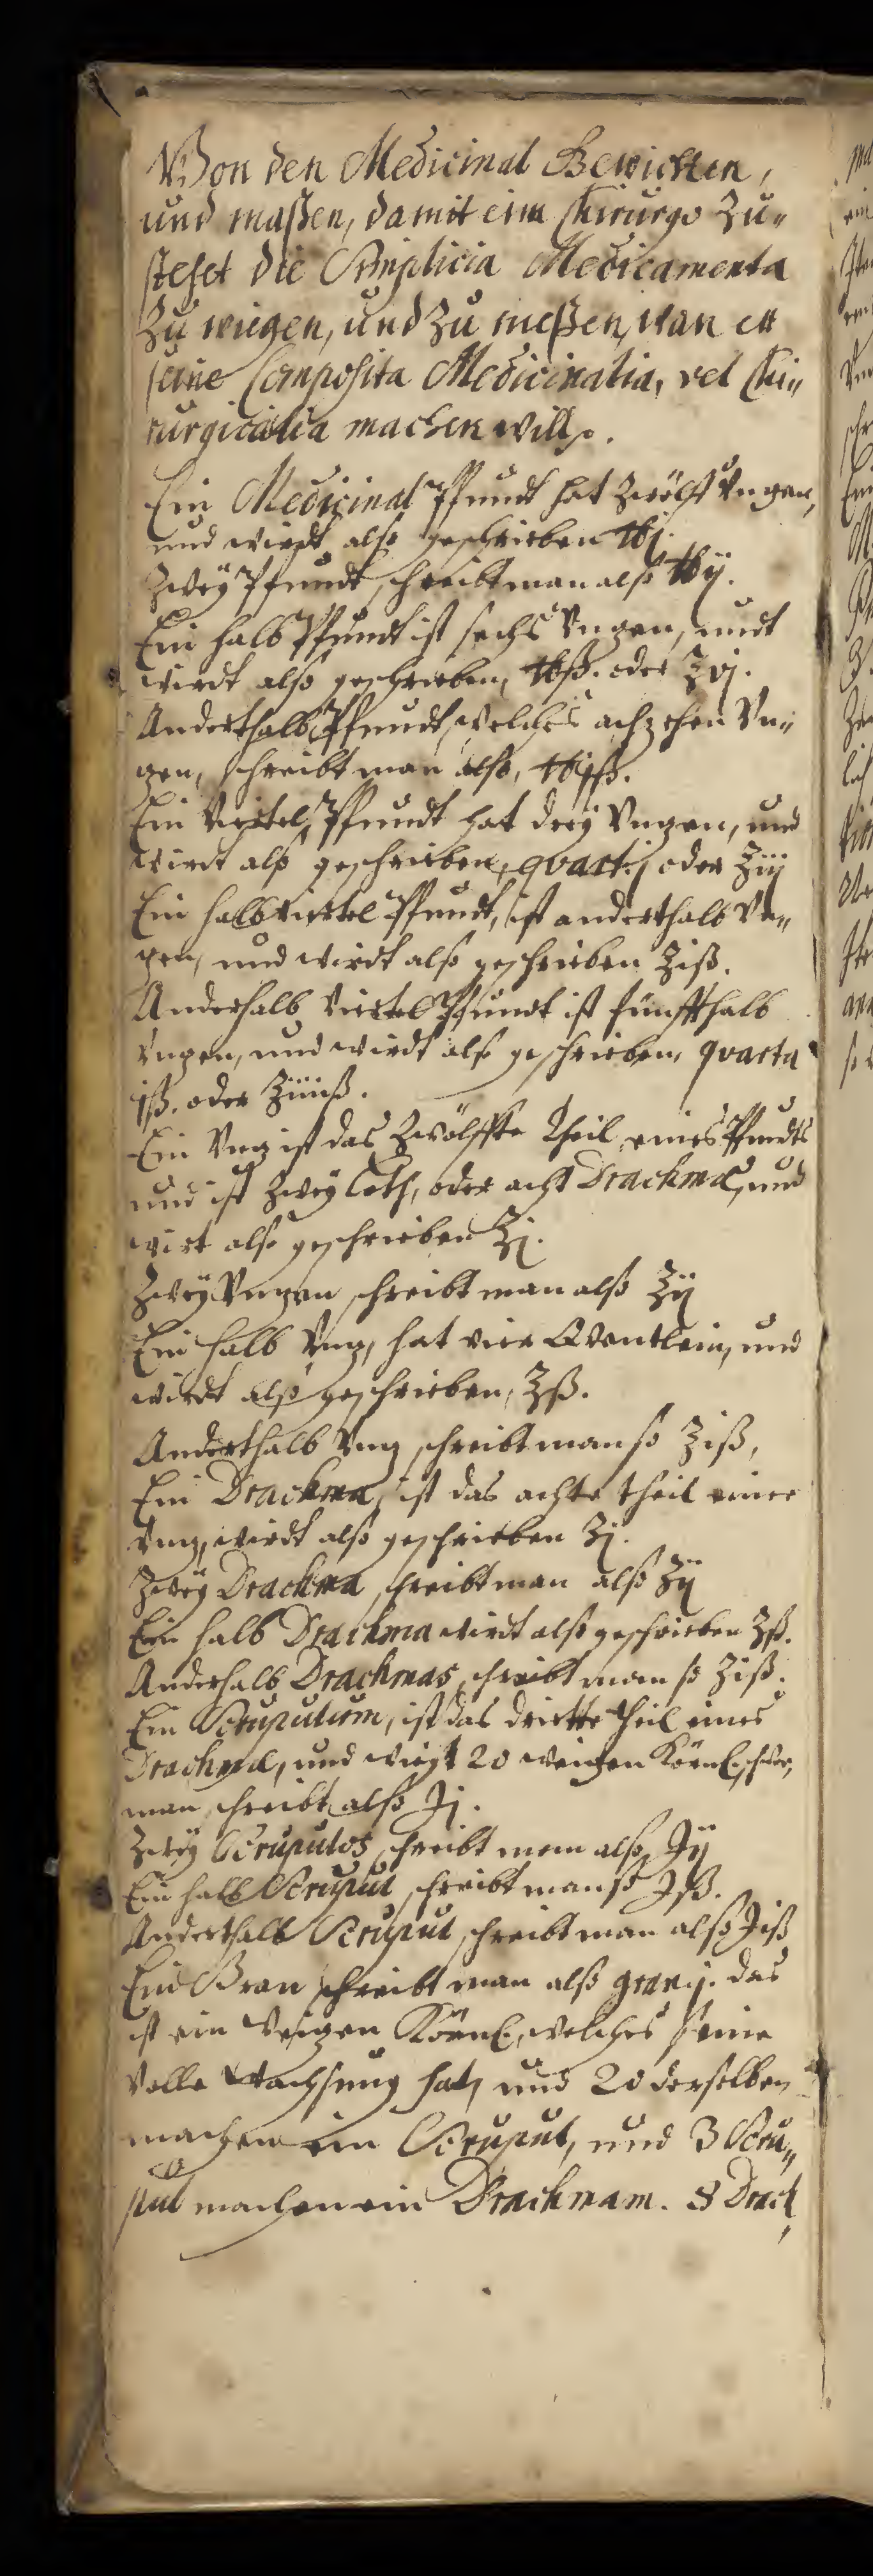 Von den Medicinal Gewichten,
und maßen, damit eim Chirurgo zu„
stehet die Simplicia Medicamenta
Zu wiegen, und Zu meßen, wan er
seine Composita Medicinalia, vel Chi„
rurgicalia machen will.
Ein Medicinal Pfundt hat Zwölff Vnzen,
und wirdt also geschrieben ℔j.
Zwey Pfundt, schreibt man also ℔ij.
Ein halb Pfundt ist sechs Vnzen, undt
wirdt also geschrieben, ℔ß. oder ℥vj.
Anderthalb Pfundt, welches achzehen Vn„
zen, schreibt man also, ℔jß.
Ein Viertel Pfundt hat drey Vnzen, und
wirdt also geschrieben, quart.j oder ℥iij
Ein halb viertel Pfundt, ist anderthalb Vn„
zen, und wirdt also geschrieben ℥iß.
Anderhalb viertel Pfundt ist fünffthalb
Vnzen, und wirdt also geschrieben, quarta
jß. oder ℥iiiiß.
Ein Vnz ist das Zwölffte Theil eines Pfundts
und ist Zwey Loth, oder acht Drachmæ, und
wirt also geschrieben ℥j.
Zwey Vnzen schreibt man also ℥ij
Ein halb Vnz, hat vier Quentlein, und
wirdt also geschrieben, ℥ß.
Anderthalb Vnz schreibt man so ℥iß,
Ein Drachma, ist das achte theil einer
Vnz, wirdt also geschrieben ʒj.
Zwey Drachma schreibt man also ʒij
Ein halb Drachma wirdt also geschrieben ʒß.
Anderhalb Drachmas schreibt man so ʒiß.
Ein Scrupulum, ist das dritte theil eines
Drachmæ, und wiegt 20 weitzen Körnl. schwer,
man schreibt also ℈j.
Zwey Scrupulos schreibt man also ℈ij
Ein halb Scrupul schreibt man so ℈ß.
Anderthalb Scrupul schreibt man also ℈iß
Ein Gran schreibt man also gran j. das
ist ein Weitzen Körnl. welches seine
Volle Wachsung hat, und 20 derselben
machen ein Scrupul, und 3 Scru„
pul machen ein Drachmam. 8 Drach